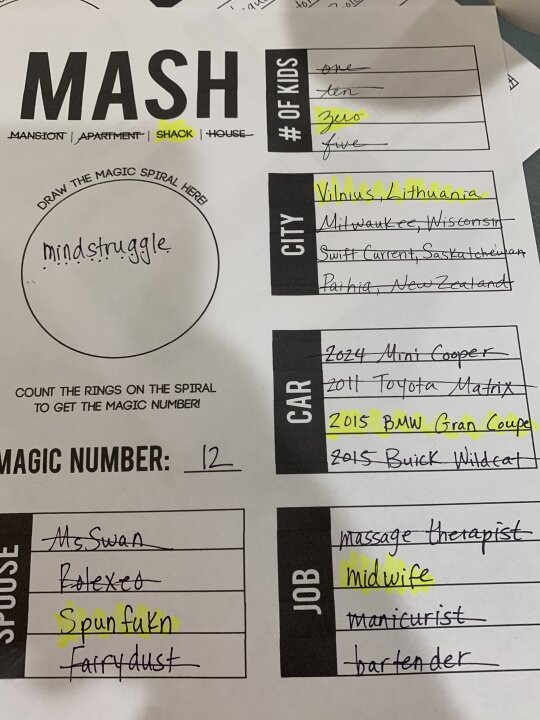 MASH
MANSION | APARTMENT | SHACK | HOUSE
DRAW THE MAGIC SPIRAL HERE!
mindstruggle
COUNT THE RINGS ON THE SPIRAL
TO GET THE MAGIC NUMBER!
MAGIC NUMBER: 12
# OF KIDS
one
ten
zero
five
CITY
Vilnius, Lithuania
Milwaukee, Wisconsin
Swift Current, Saskatchewan
Paihia, New Zealand
CAR
2024 Mini Cooper
2011 Toyota Matrix
2015 BMW Gran Coupe
2015 Buick Wildcat
SPOUSE
Ms. Swan
Rolexeo
Spunfukn
Fairydust
JOB
massage therapist
midwife
manicurist
bartender